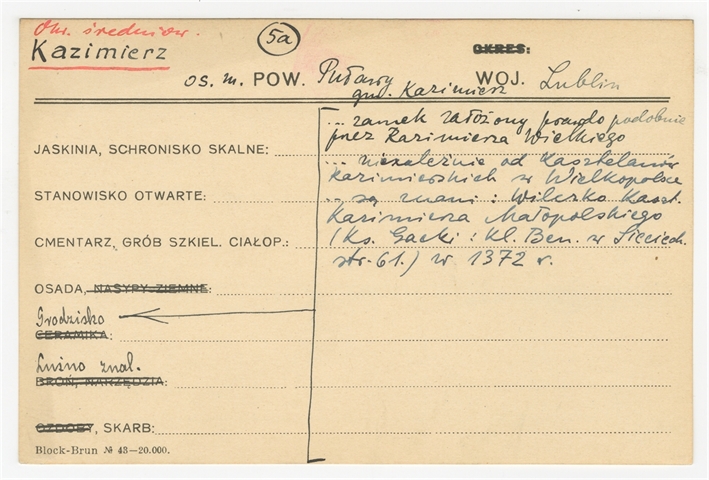 Okr. średniow.
Kazimierz
5a
OKRES:
os. m. POW. Puławy WOJ. Lublin
gm. Kazimierz
... zamek założony prawdopodobnie
przez Kazimierza Wielkiego
JASKINIA, SCHRONISKO SKALNE:
... niezależnie od kasztelanów
kazimierskich w Wielkopolsce
STANOWISKO OTWARTE:
... są znani: Wilczko Kaszt.
Kazimierza Małopolskiego
CMENTARZ, GRÓB SZKIEL. CIAŁOP.:
(Ks. Gacki: Kl. Ben. w Sieciech.
str. 61.) w 1372 r.
OSADA, NASYPY ZIEMNE:
Grodzisko
CERAMIKA:
Luźno znal.
BROŃ, NARZĘDZIA:
OZDOBY, SKARB:
Block-Brun № 43—20.000.